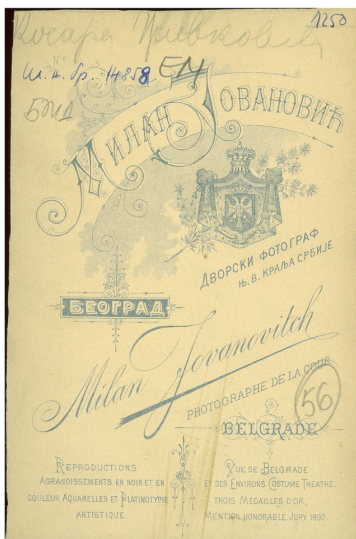 1250
Косара Цветковић
И. н. бр. 14858 ЕМ
МИЛАН ЈОВАНОВИЋ
ДВОРСКИ ФОТОГРАФ
Њ. В. КРАЉА СРБИЈЕ
БЕОГРАД
Milan Jovanovitch
PHOTOGRAPHE DE LA COUR
56
BELGRADE
REPRODUCTIONS
AGRANDISSEMENTS EN NOIR ET EN
COULEUR AQUARELLES ET PLATINOTYPIE
ARTISTIQUE
VUE DE BELGRADE
ET DES ENVIRONS COSTUME THEATRE
TROIS MEDAILLES D'OR,
MENTION HONORABLE JURY 1892.